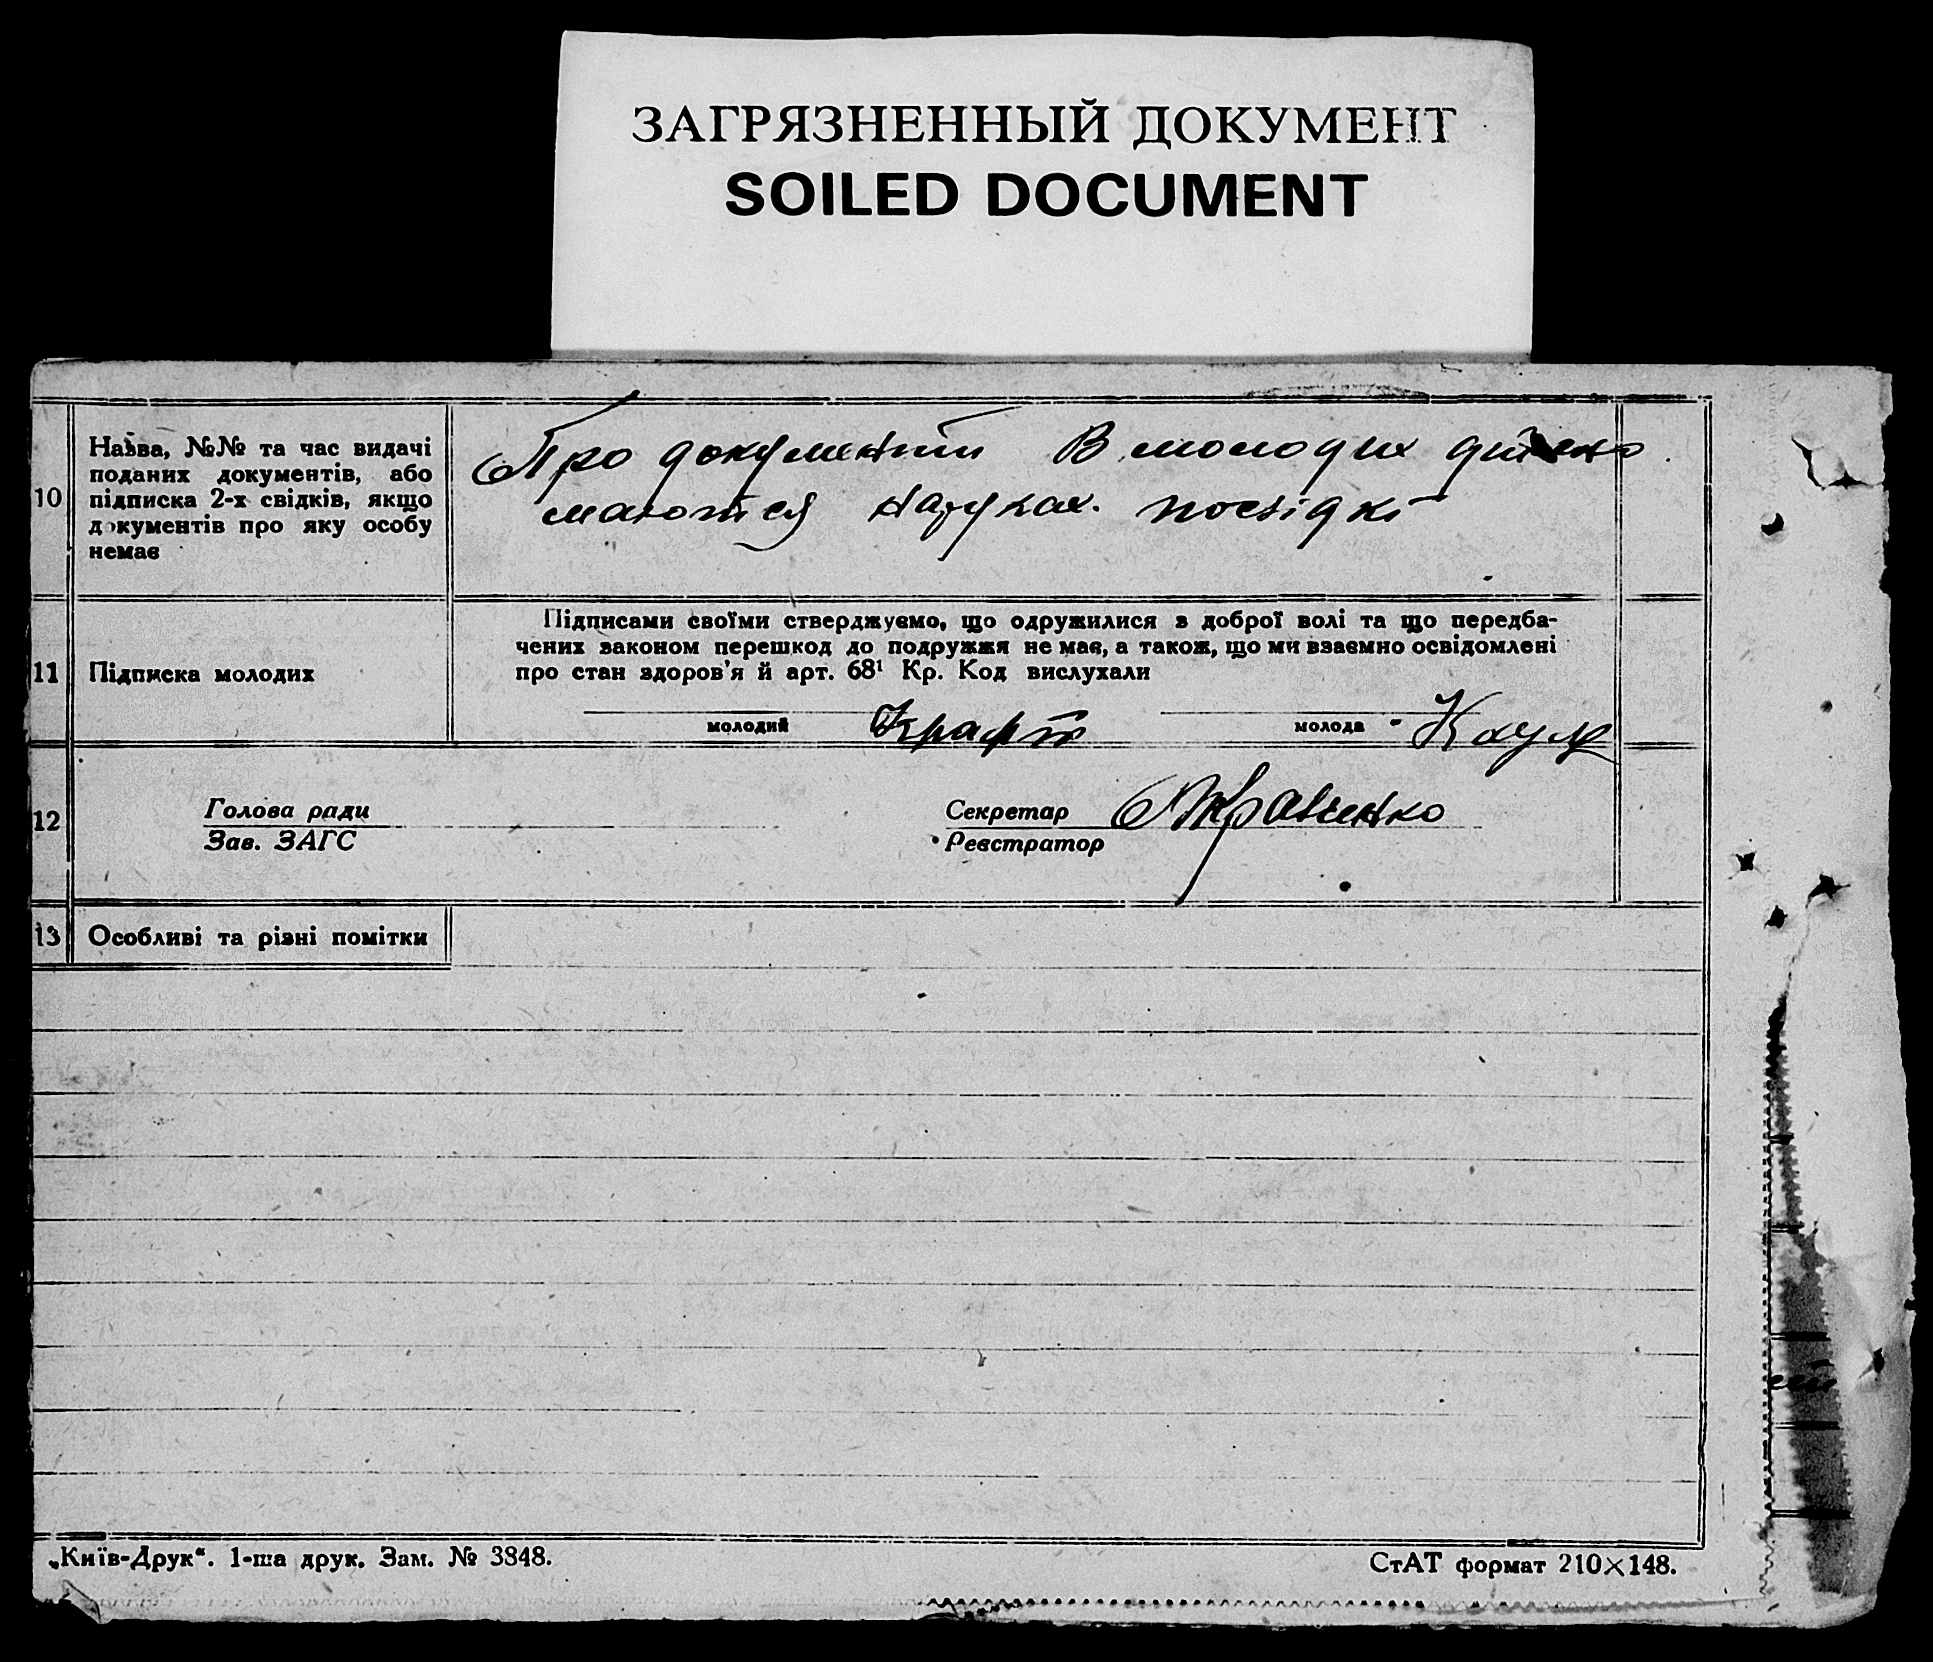 ЗАГРЯЗНЕННЫЙ ДОКУМЕНТ
SOILED DOCUMENT
10
Назва, №№ та час видачі
поданих документів, або
підписка 2-х свідків, якщо
документів про яку особу
немає
Про документи В молодих дійсно
маются на руках. посвідкі
11
Підписка молодих
Підписами своїми стверджуємо, що одружилися з доброї волі та що передба-
чених законом перешкод до подружжя не має, а також, що ми взаємно освідомлені
про стан здоров'я й арт. 68¹ Кр. Код вислухали
молодий Крафт молода
12
Голова ради
Зав. ЗАГС
Секретар Кравченко
Реєстратор
13
Особливі та різні помітки
„Київ-Друк“. 1-ша друк. Зам. № 3848.
СтАТ формат 210×148.